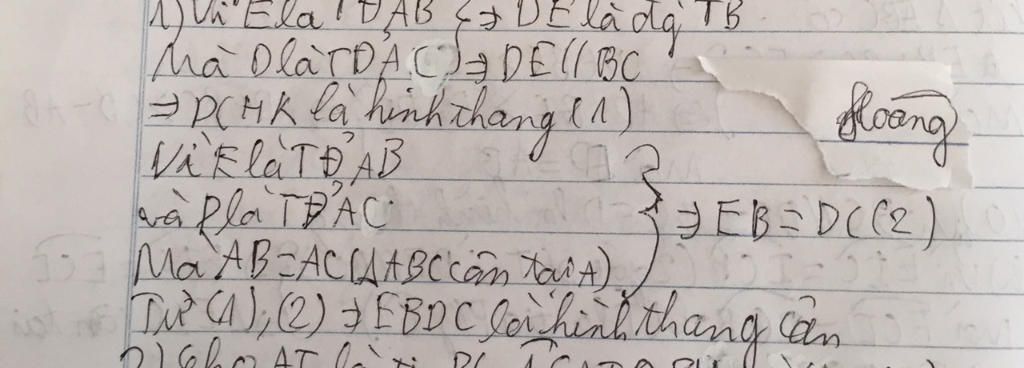 1) Vì E là TĐ AB } ⇒ DE là đg TB
Mà D là TĐ AC } ⇒ DE // BC
⇒ DCHK là hình thang (1)
Hoàng
Vì E là TĐ AB
và D là TĐ AC
Mà AB = AC (ΔABC cân tại A)
} ⇒ EB = DC (2)
Từ (1), (2) ⇒ EBDC là hình thang cân